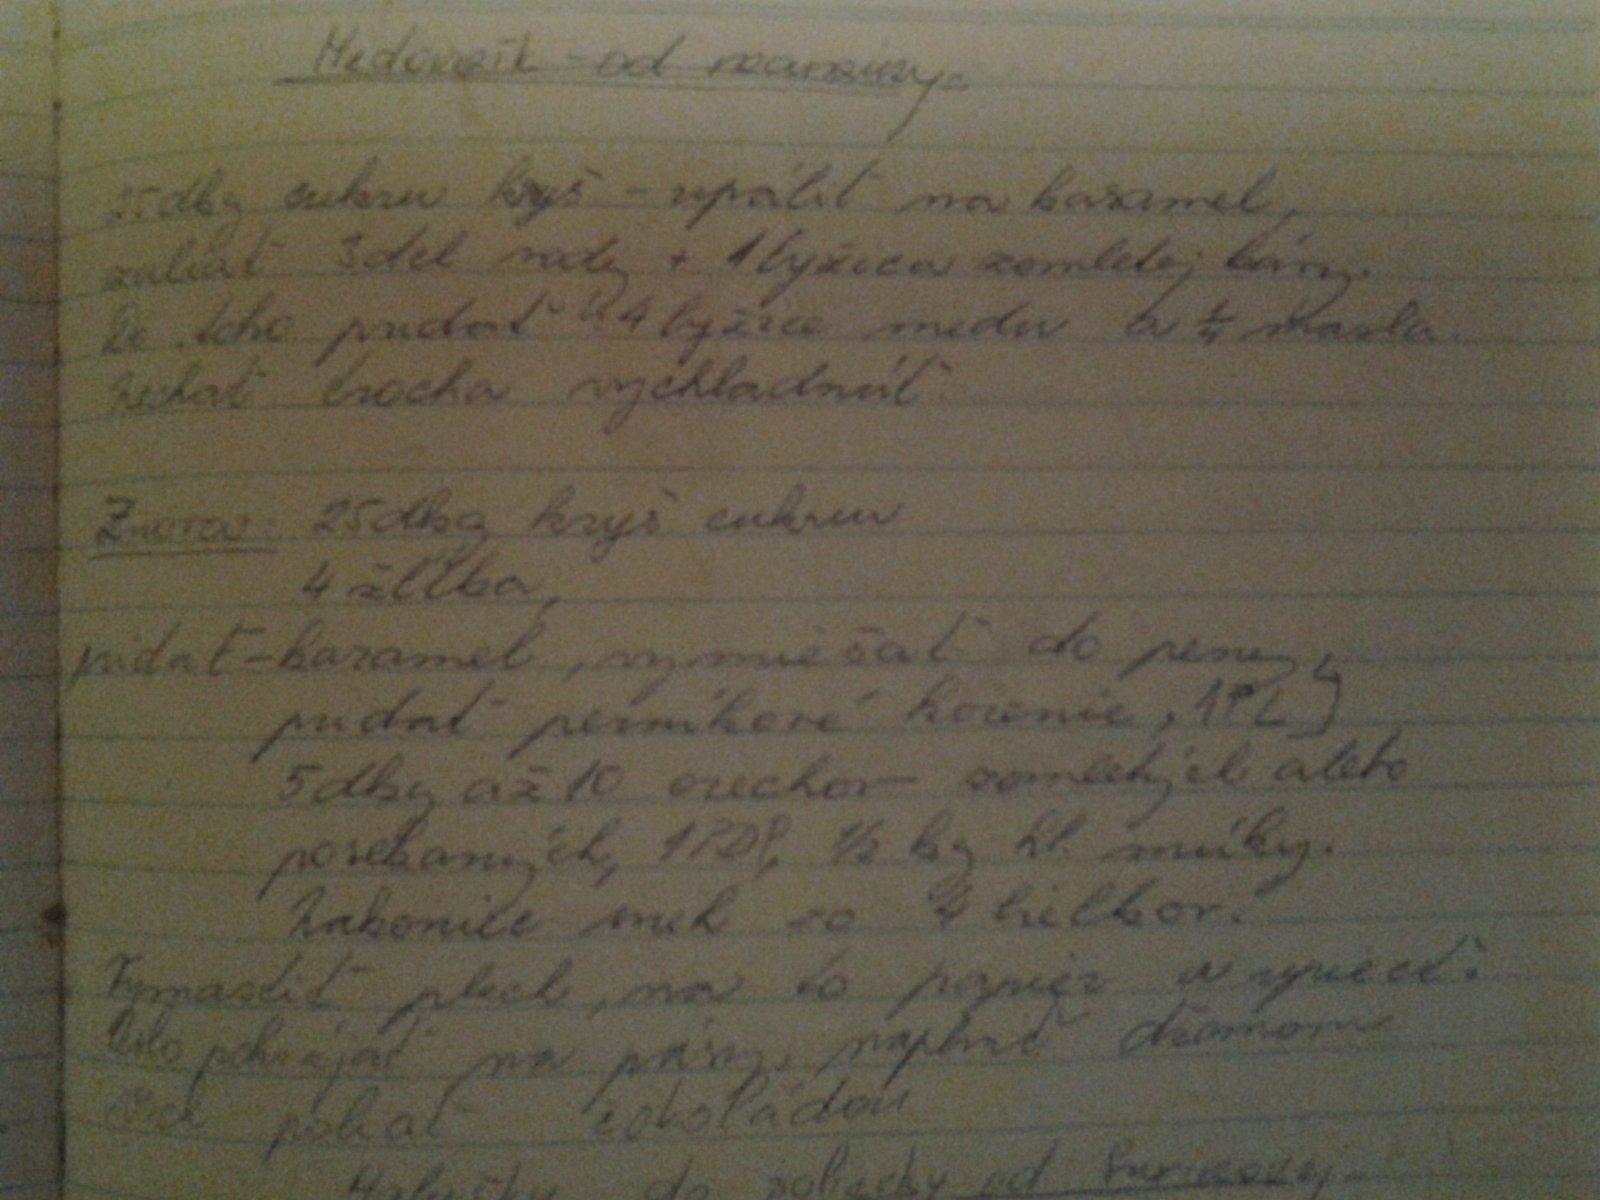 Medovník - od
25dkg cukru kryš - upáliť na karamel,
zaliať 3del vody + 1 lyžica zomletej kávy.
Do toho pridať 4 lyžice medu a 1/4 masla.
Nechať trocha vychladnúť.
Znova: 25dkg kryš cukru
4 žĺtka,
pridať - karamel, vymiešať do peny,
pridať perníkové korenie, 1PL
5dkg až 10 orechov zomletých alebo
posekaných, 1PDP, 1/2 kg hl. múky.
Nakoniec sneh zo 4 bielkov.
Vymastiť plech, na to papier a upiecť.
pokrájať na pásy, naplniť džemom
poliať čokoládou
do polievky od